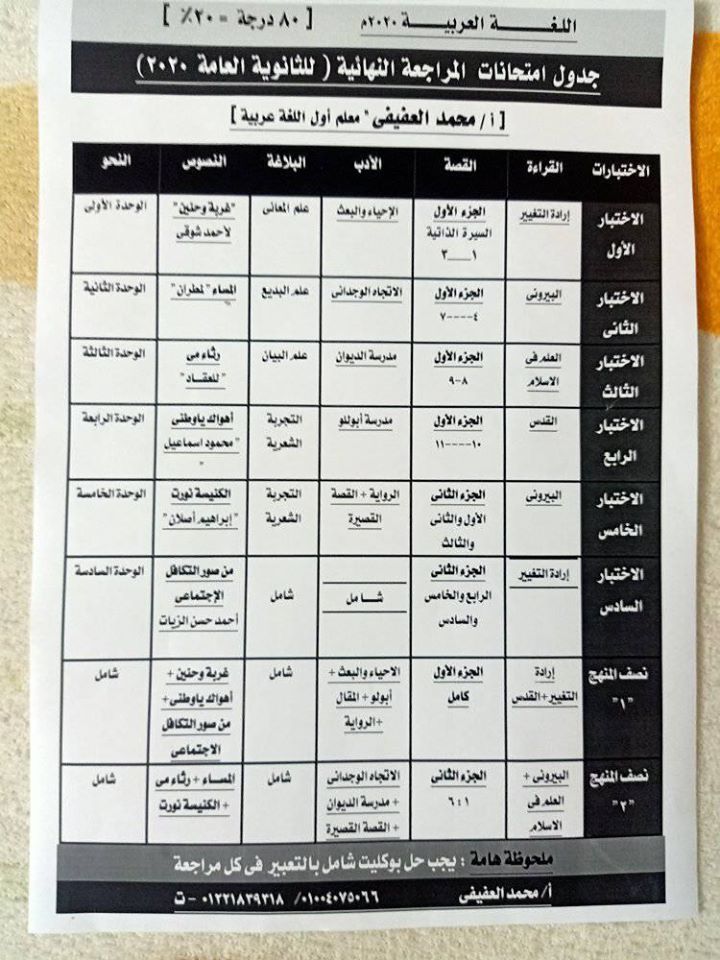 اللغـــة العربيـــة ٢٠٢٠م [ ٨٠ درجة = ٢٠٪ ]
جدول امتحانات المراجعة النهائية ( للثانوية العامة ٢٠٢٠)
[ أ / محمد العفيفى " معلم أول اللغة عربية ]
الاختبارات القراءة القصة الأدب البلاغة النصوص النحو
الاختبار إرادة التغيير الجزء الأول الإحياء والبعث علم المعانى "غربة وحنين" الوحدة الأولى
الأول السيرة الذاتية لأحمد شوقى
١___٣
الاختبار البيرونى الجزء الأول الاتجاه الوجدانى علم البديع المساء "لمطران" الوحدة الثانية
الثانى ٤----٧
الاختبار العلم فى الجزء الأول مدرسة الديوان علم البيان رثاء مى الوحدة الثالثة
الثالث الاسلام ٨-٩ "للعقاد"
الاختبار القدس الجزء الأول مدرسة أبوللو التجربة أهواك ياوطنى الوحدة الرابعة
الرابع ١٠----١١ الشعرية "محمود اسماعيل
"
الاختبار البيرونى الجزء الثانى الرواية + القصة التجربة الكنيسة نورت الوحدة الخامسة
الخامس الأول والثانى القصيرة الشعرية "إبراهيم أصلان"
والثالث
الاختبار إرادة التغيير الجزء الثانى شـــامل شامل من صور التكافل الوحدة السادسة
السادس الرابع والخامس الإجتماعى
والسادس أحمد حسن الزيات
نصف المنهج إرادة الجزء الأول الاحياء والبعث + شامل غربة وحنين + شامل
"١" التغيير+القدس كامل أبولو + المقال أهواك ياوطنى+
+الرواية من صور التكافل
الاجتماعى
نصف المنهج البيرونى + الجزء الثانى الاتجاه الوجدانى شامل المساء + رثاء مى شامل
"٢" العلم فى ٦:١ + مدرسة الديوان + الكنيسة نورت
الاسلام + القصة القصيرة
ملحوظة هامة : يجب حل بوكليت شامل بالتعبير فى كل مراجعة
أ/ محمد العفيفى ٠١٠٠٤٠٧٥٠٦٦ /٠١٢٢١٨٣٩٣١٨ -ت